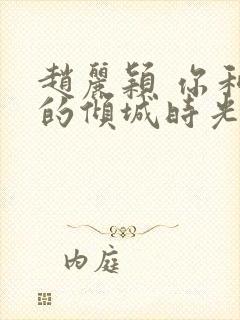 趙麗穎 你和
的傾城時光
內庭